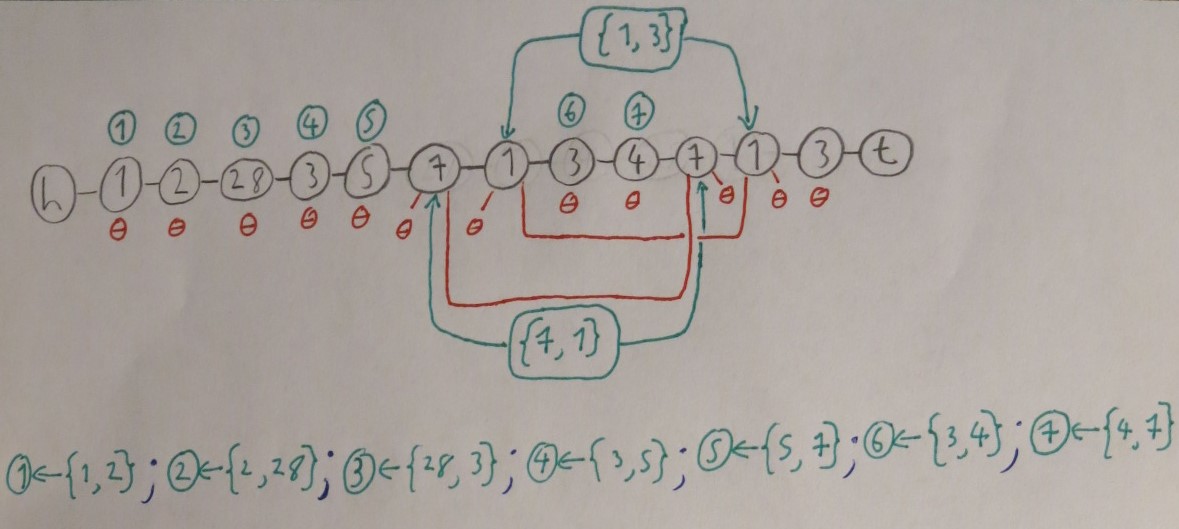 {1, 3}
① ② ③ ④ ⑤ ⑥ ⑦
h 1 2 28 3 5 7 1 3 4 7 1 3 t
θ θ θ θ θ θ θ θ θ θ θ θ
{7, 1}
①←{1,2}; ②←{2,28}; ③←{28,3}; ④←{3,5}; ⑤←{5,7}; ⑥←{3,4}; ⑦←{4,7}